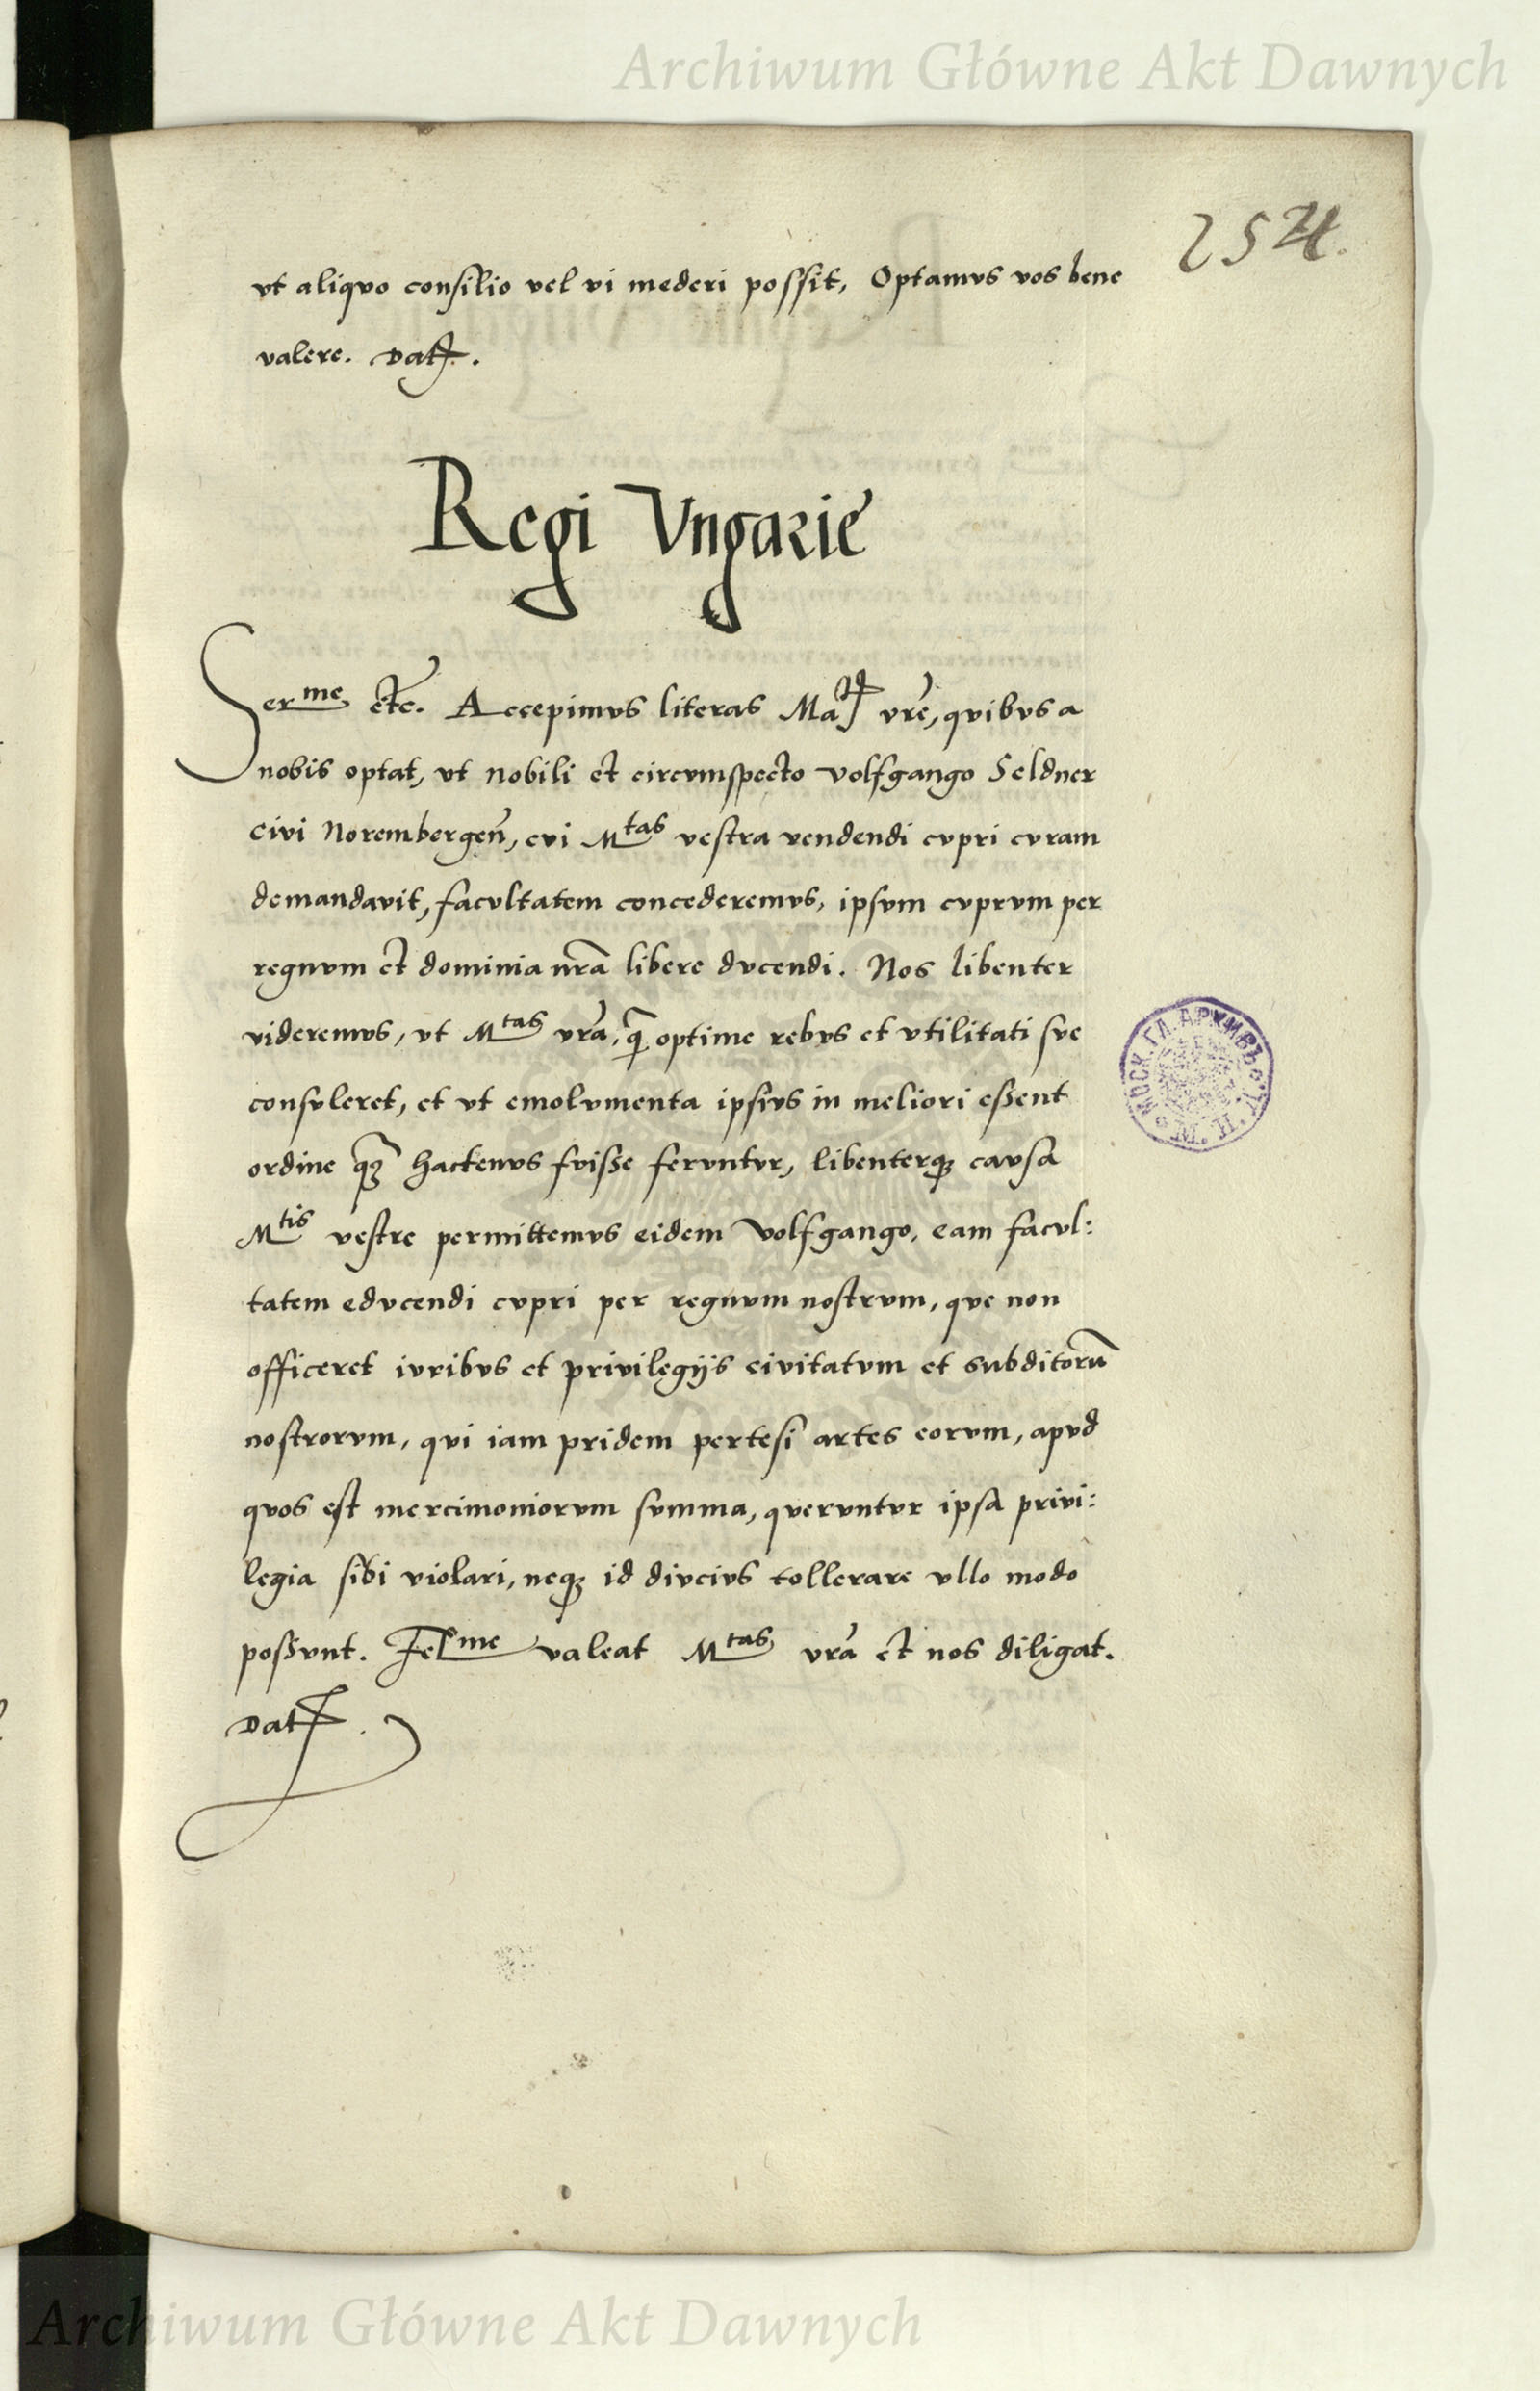 Archiwum Główne Akt Dawnych
254.
vt aliqvo consilio vel vi mederi possit, Optamvs vos bene
valere. Dat.
Regi Vngarie
Serme etc. Accepimvs literas Mat vrē, qvibvs a
nobis optat, vt nobili et circvmspecto Volfgango Seldner
civi Norembergen̄, cvi Mtas vestra vendendi cvpri cvram
demandavit, facvltatem concederemvs, ipsvm cvprvm per
regnvm et dominia nrā libere dvcendi. Nos libenter
videremvs, vt Mtas vrā, q̄ optime rebvs et vtilitati sve
consvleret, et vt emolvmenta ipsivs in meliori essent
ordine qꝫ hactenvs fvisse fervntvr, libenterqꝫ cavsa
Mtis vestre permittemvs eidem Volfgango, eam facvl:
tatem edvcendi cvpri per regnvm nostrvm, qve non
officeret ivribvs et privilegijs civitatvm et subditorū
nostrorvm, qvi iam pridem pertesi artes eorvm, apvd
qvos est mercimoniorvm svmma, qvervntvr ipsa privi:
legia sibi violari, neqꝫ id divcivs tollerare vllo modo
possvnt. Felme valeat Mtas vrā et nos diligat.
Dat.
МОСК. ГЛ. АРХИВЪ
М. И. Д.
Archiwum Główne Akt Dawnych